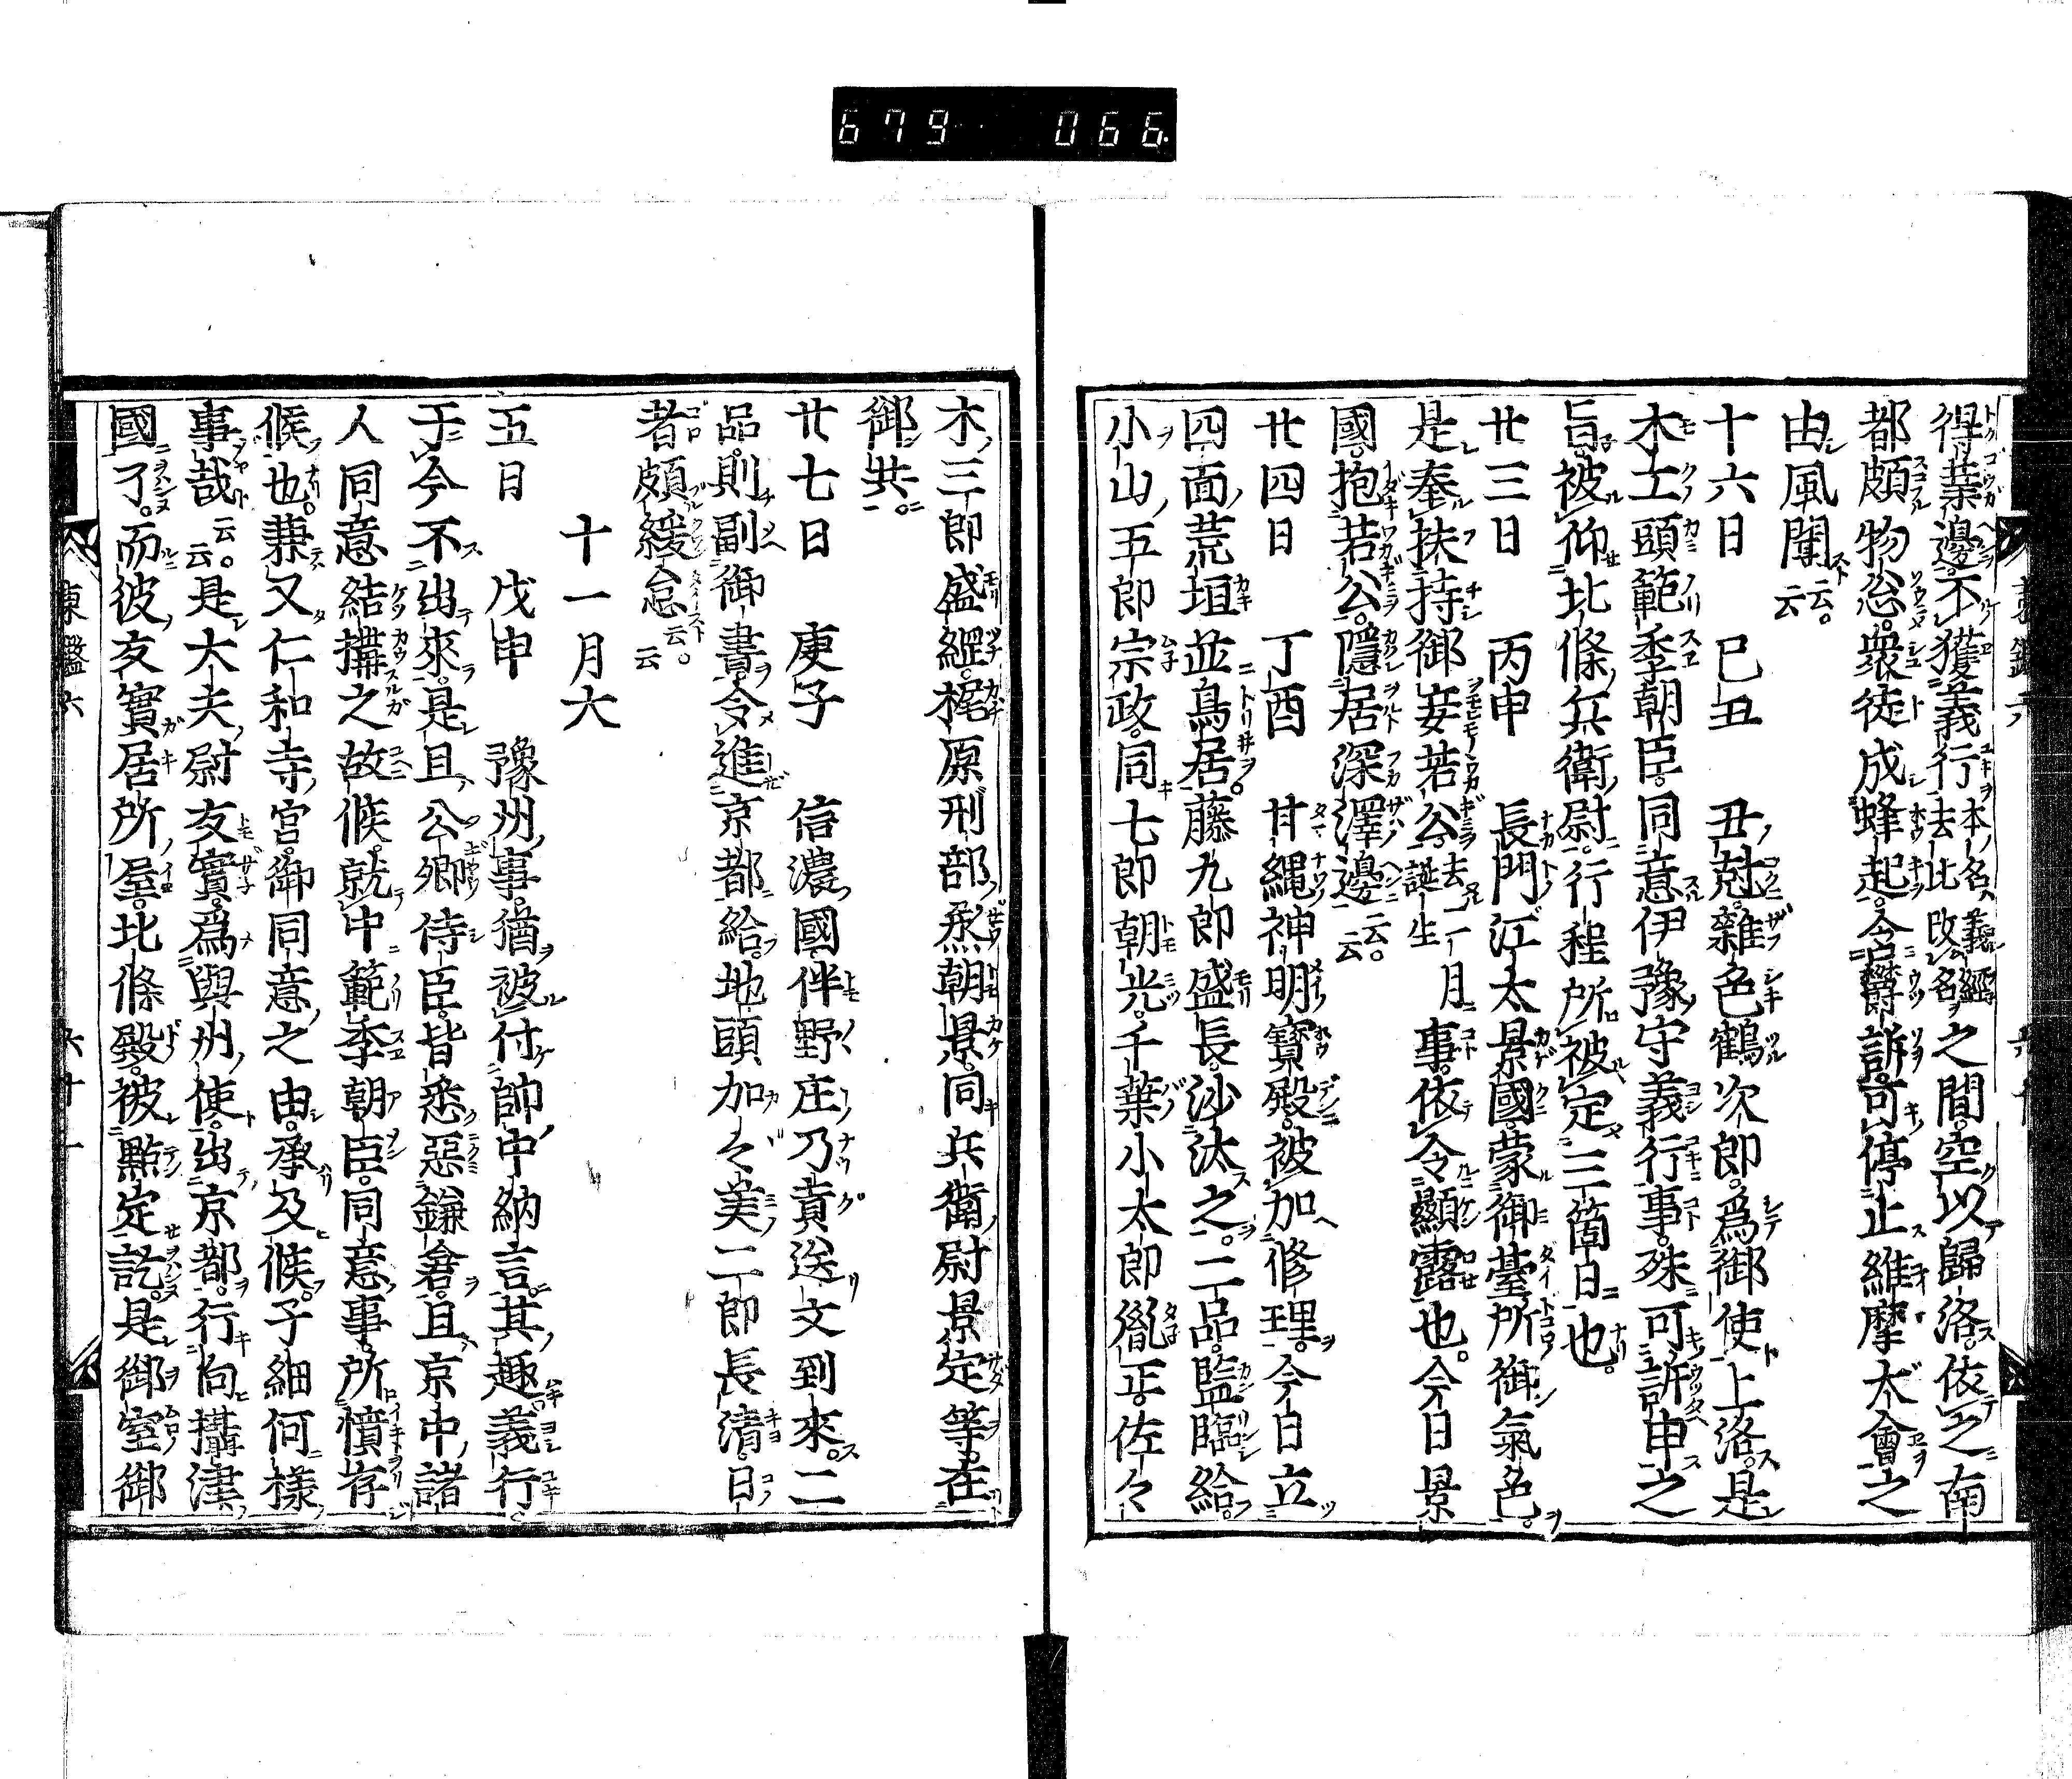 679 066
得業邊不獲義行本名義經去比改名之間空以歸洛依之南
都頗物忩衆徒成蜂起含欝訴可停止維摩大會之
由風聞云云
十六日 己丑 丑尅雜色鶴次郎爲御使上洛是
木工頭範季朝臣同意伊豫守義行事殊可訴申之
旨被仰北條兵衛尉行程所被定三箇日也
廿三日 丙申 長門江太景國蒙御臺所御氣色
是奉扶持御妾若公去二月誕生事依令顯露也今日景
國抱若公隱居深澤邊云云
廿四日 丁酉 甘縄神明寶殿被加修理今日立
四面荒垣並鳥居藤九郎盛長沙汰之二品監臨給
小山五郎宗政同七郎朝光千葉小太郎胤正佐々
木三郎盛綱梶原刑部烝朝景同兵衛尉景定等在
御共
廿七日 庚子 信濃國伴野庄乃貢送文到來二
品則副御書令進京都給地頭加々美二郎長清日
者頗緩怠云云
十一月大
五日 戊申 豫州事猶被付帥中納言其趣義行
于今不出來是且公卿侍臣皆悉惡鎌倉且京中諸
人同意結搆之故候就中範季朝臣同意事所憤存
候也兼又仁和寺宮御同意之由承及候子細何樣
事哉云云是大夫尉友實爲與州使出京都行向攝津
國了而彼友實居所屋北條殿被點定訖是御室御
東鑑六 六十一